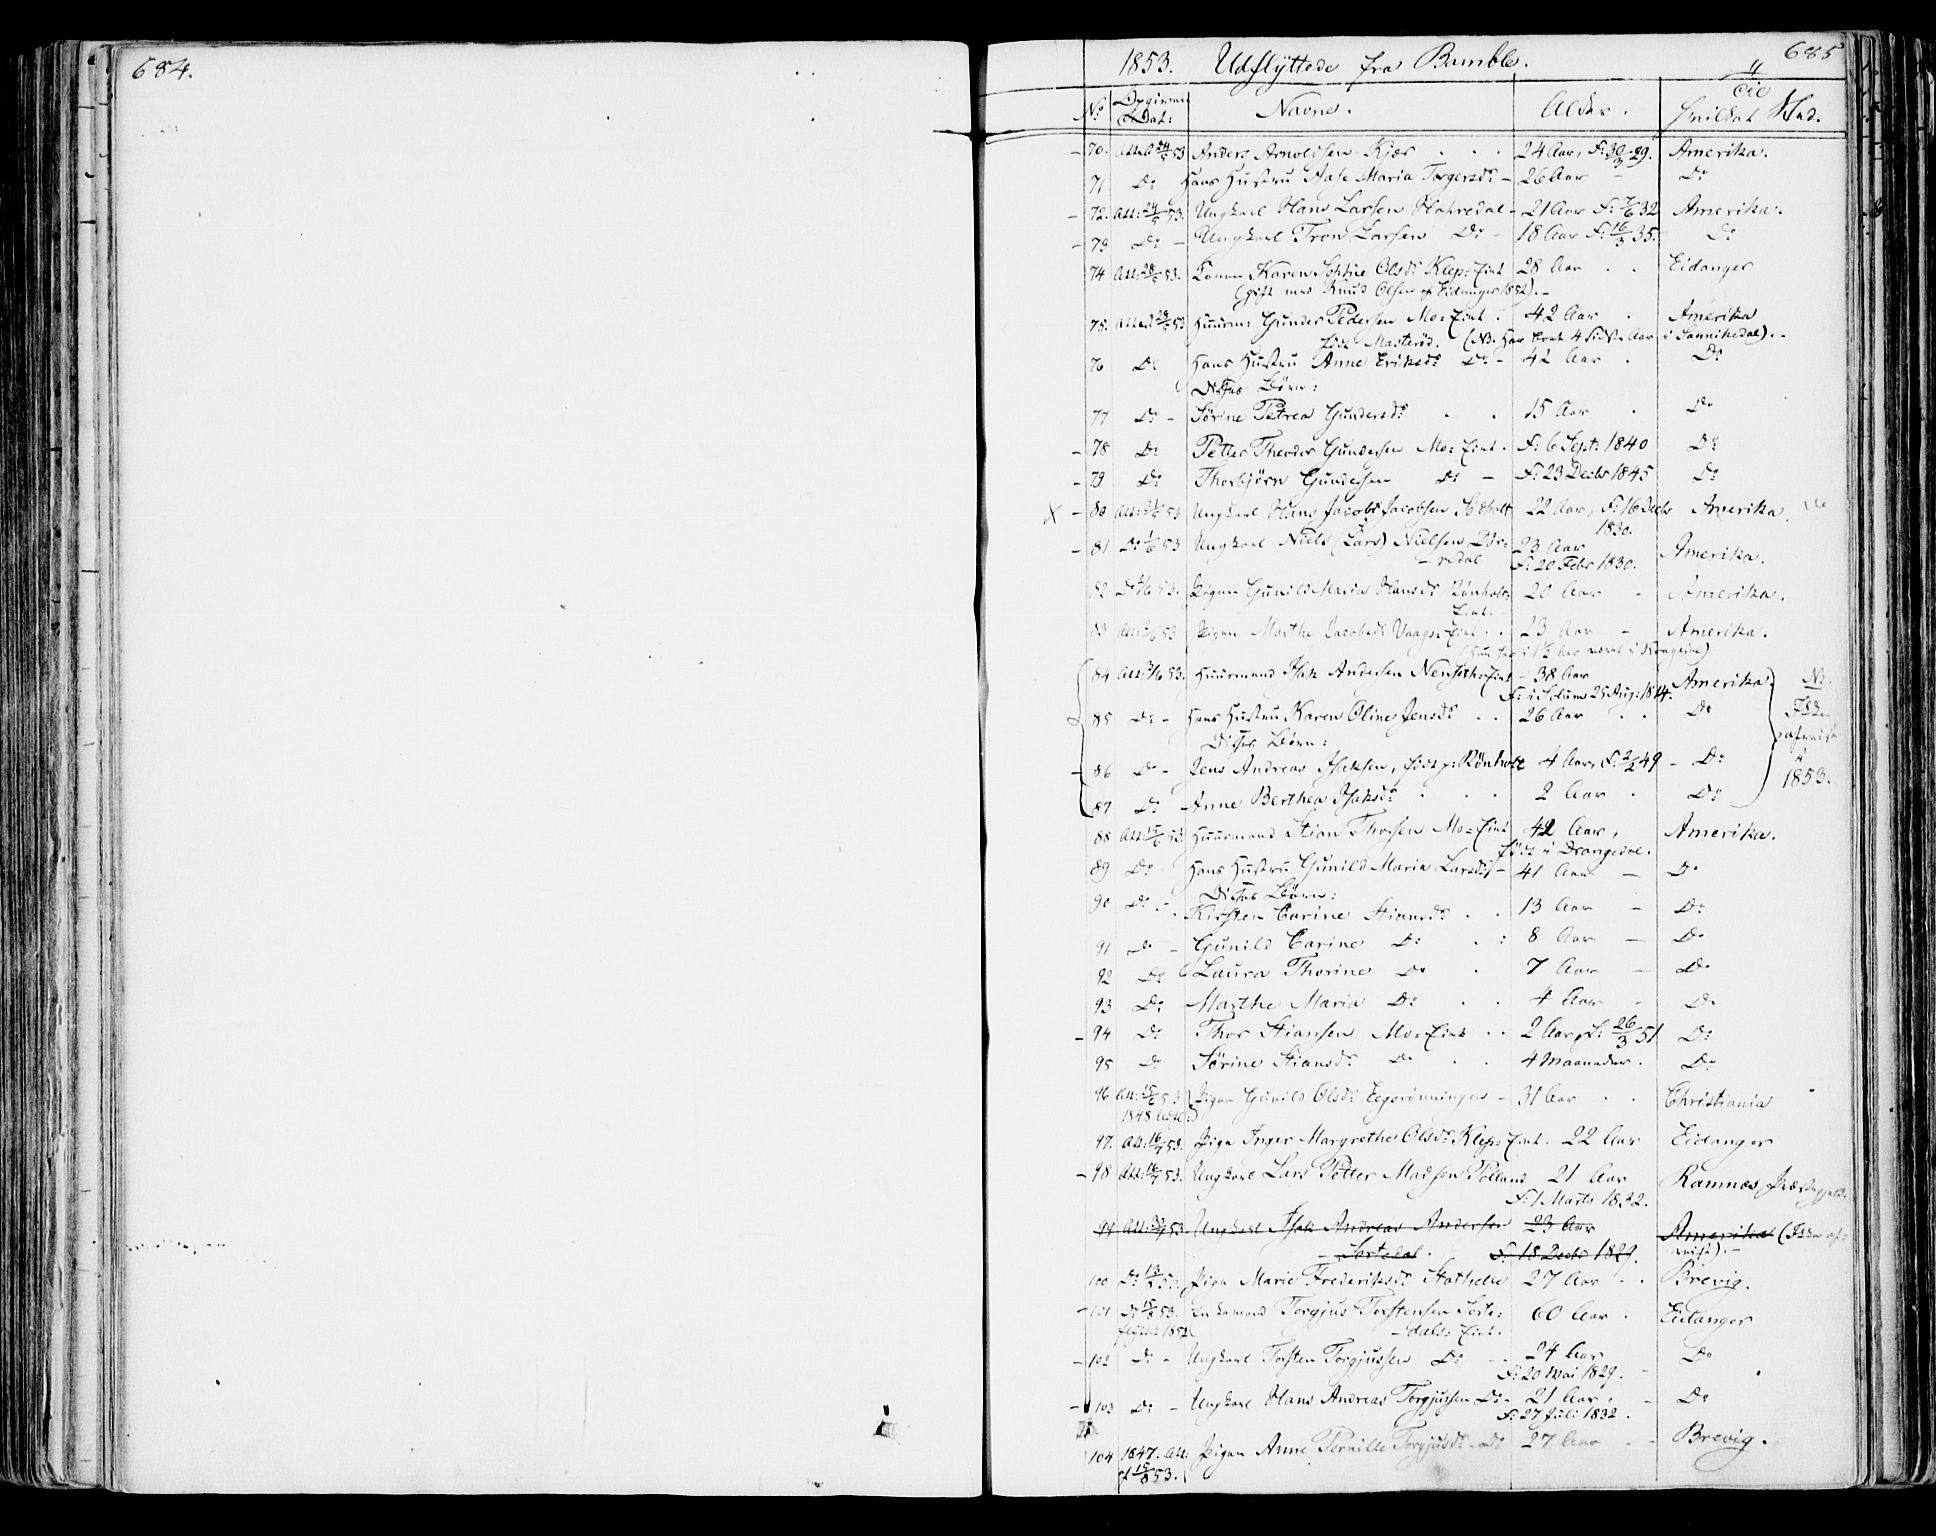 684.
685
1853. Udflyttede fra Bamble.
No Navne. Alder. til hvilket Sted.
70. Attest 24/5 53 Anders Arnoldsen Kjær 24 Aar, F: 30/3 29. Amerika.
71 Do Hans Hustru Aase Maria Torgersdr 26 Aar Do
72. Att: 24/5 53. Ungkarl Hans Larsen 21 Aar F: 7/6 32 Amerika.
73 Do Ungkarl Tron Larsen Do 18 Aar F: 16/3 35. Do
74 Att: 28/5 53. Konen Karen Sophie Olsdr Klep-Eint 28 Aar Eidanger
(gift med Knud Olsen af Eidanger 1852).
75. Attest 28/5 53 Huusm: Gunder Pedersen Mo-Eint: 42 Aar Amerika
(NB. Har boet 4 sidste Aar i Sannikedal).
76 Do Hans Hustru Anne Eriksdr Do 42 Aar Do
Disses Børn:
77 Do Sørine Petrea Gundersdr 15 Aar Do
78 Do Petter Theodor Gundersen Mo-Eint. F: 6 Sept: 1840 Do
79 Do Thorbjørn Gundersen Do F: 23 Decbr 1845 Do
80 Ungkarl Hans Jacob Jacobsen 22 Aar, F: 16 Decbr 1830. Amerika.
81 Do 1/6 53 Ungkarl Niels (Lars) Nielsen Dør-
redal 23 Aar F: 20 Febr 1830. Amerika.
82 Pigen Gunild Maria Hansdr Rønholt-
Eint. 20 Aar Amerika.
83 Pigen Marthe Jacobsdr Vaags-Eint 23 Aar Amerika.
84 Att: 3/6 53. Huusmand Isak Andersen 38 Aar Amerika. NB.
F: i Solum 25 Aug: 1814.
85 Do Hans Hustru Karen Oline Jensdr 26 Aar Do
Disses Børn:
86 Do Jens Andreas Isaksen, Rönholt 4 Aar, F: 2/2 49 Do
1853.
87 Do Anne Berthea Isaksdr 2 Aar Do
88 Att: 15/6 53. Huusmand Stian Thorsen Mo-Eint 42 Aar, Amerika.
født i Drangedal.
89 Do Hans Hustru Gunild Maria Larsdr 41 Aar Do
Disses Børn:
90 Do Kirsten Carine Stiansdr 13 Aar Do
91 Do Gunild Carine Do 8 Aar Do
92 Do Laura Thorine Do 7 Aar Do
93 Do Marthe Maria Do 4 Aar Do
94 Do Thor Stiansen Mo-Eint 2 Aar, F: 26/3 51 Do
95 Do Sørine Stiansdr Do 4 Maaneder. Do
96 Pigen Gunild Olsdr 31 Aar Christiania
97. Att: 16/7 53. Pige Inger Margrethe Olsdr Klep-Eint. 22 Aar Eidanger
98 Att: 16/7 53. Ungkarl Lars Petter Madsen Tolland 21 Aar Ramnes Præstegjeld.
F: 1 Marts 1832.
99 Ungkarl Isak Andreas Andersen 23 Aar Amerika
Sortedal. F: 18 Decbr 1829.
100 Pige Marie Frederiksdr Stathelle 27 Aar Brevig.
101 Do 15/8 53. Enkemand Torgjus Torstensen Sorte-
dals-Eint. 60 Aar Eidanger
102 Do Ungkarl Torsten Torgjussen Do 24 Aar Do
F: 20 Mai 1829.
103 Do Ungkarl Hans Andreas Torgjussen Do 21 Aar. Do
F: 27 Juli 1832.
104 1847. Att: Pigen Anne Pernille Torgjusdr Do 27 Aar Brevig.
af 15/8 53.